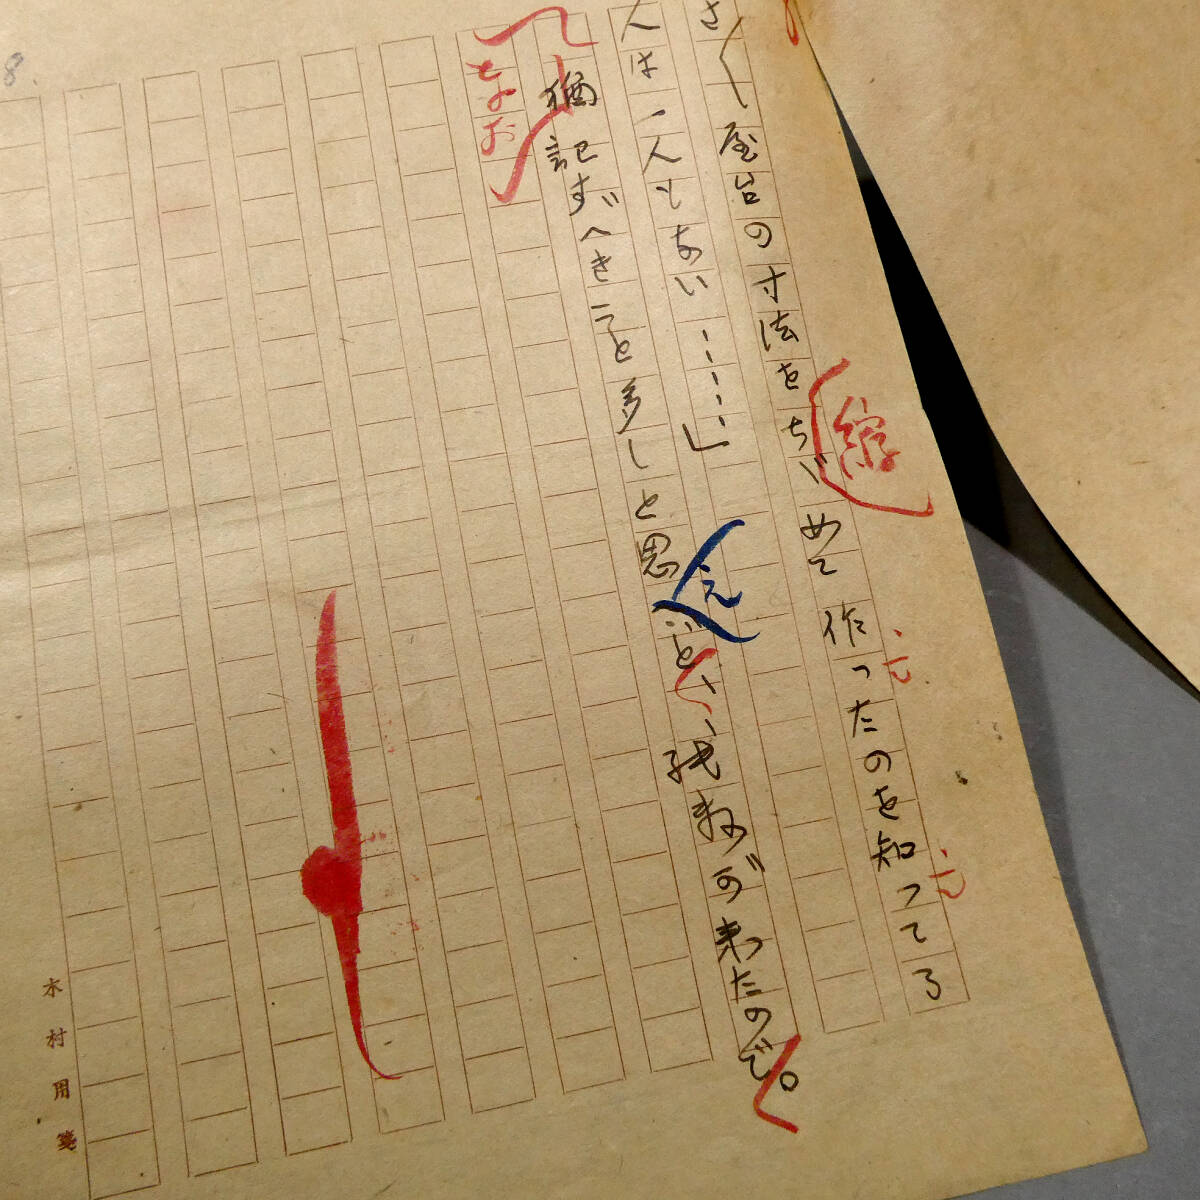 さく屋台の寸法をちゞめて作ったのを知ってる
縮
人は一人もあい……」
猶記すべきこと多しと思へど、、紙数が来たので。
え
なお
8.
木村用箋